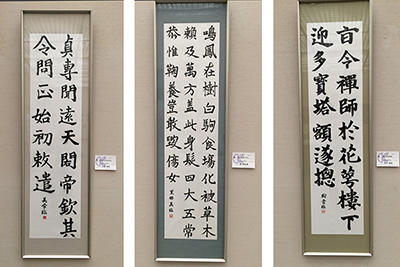 貞專
帝欽其
令問正始初敕遣
鳴鳳在樹白駒食場化被草木
賴及萬方蓋此身髮四大五常
恭惟鞠養豈敢毀傷女
旨令禪師於花萼樓下
迎多寶塔額遂摠